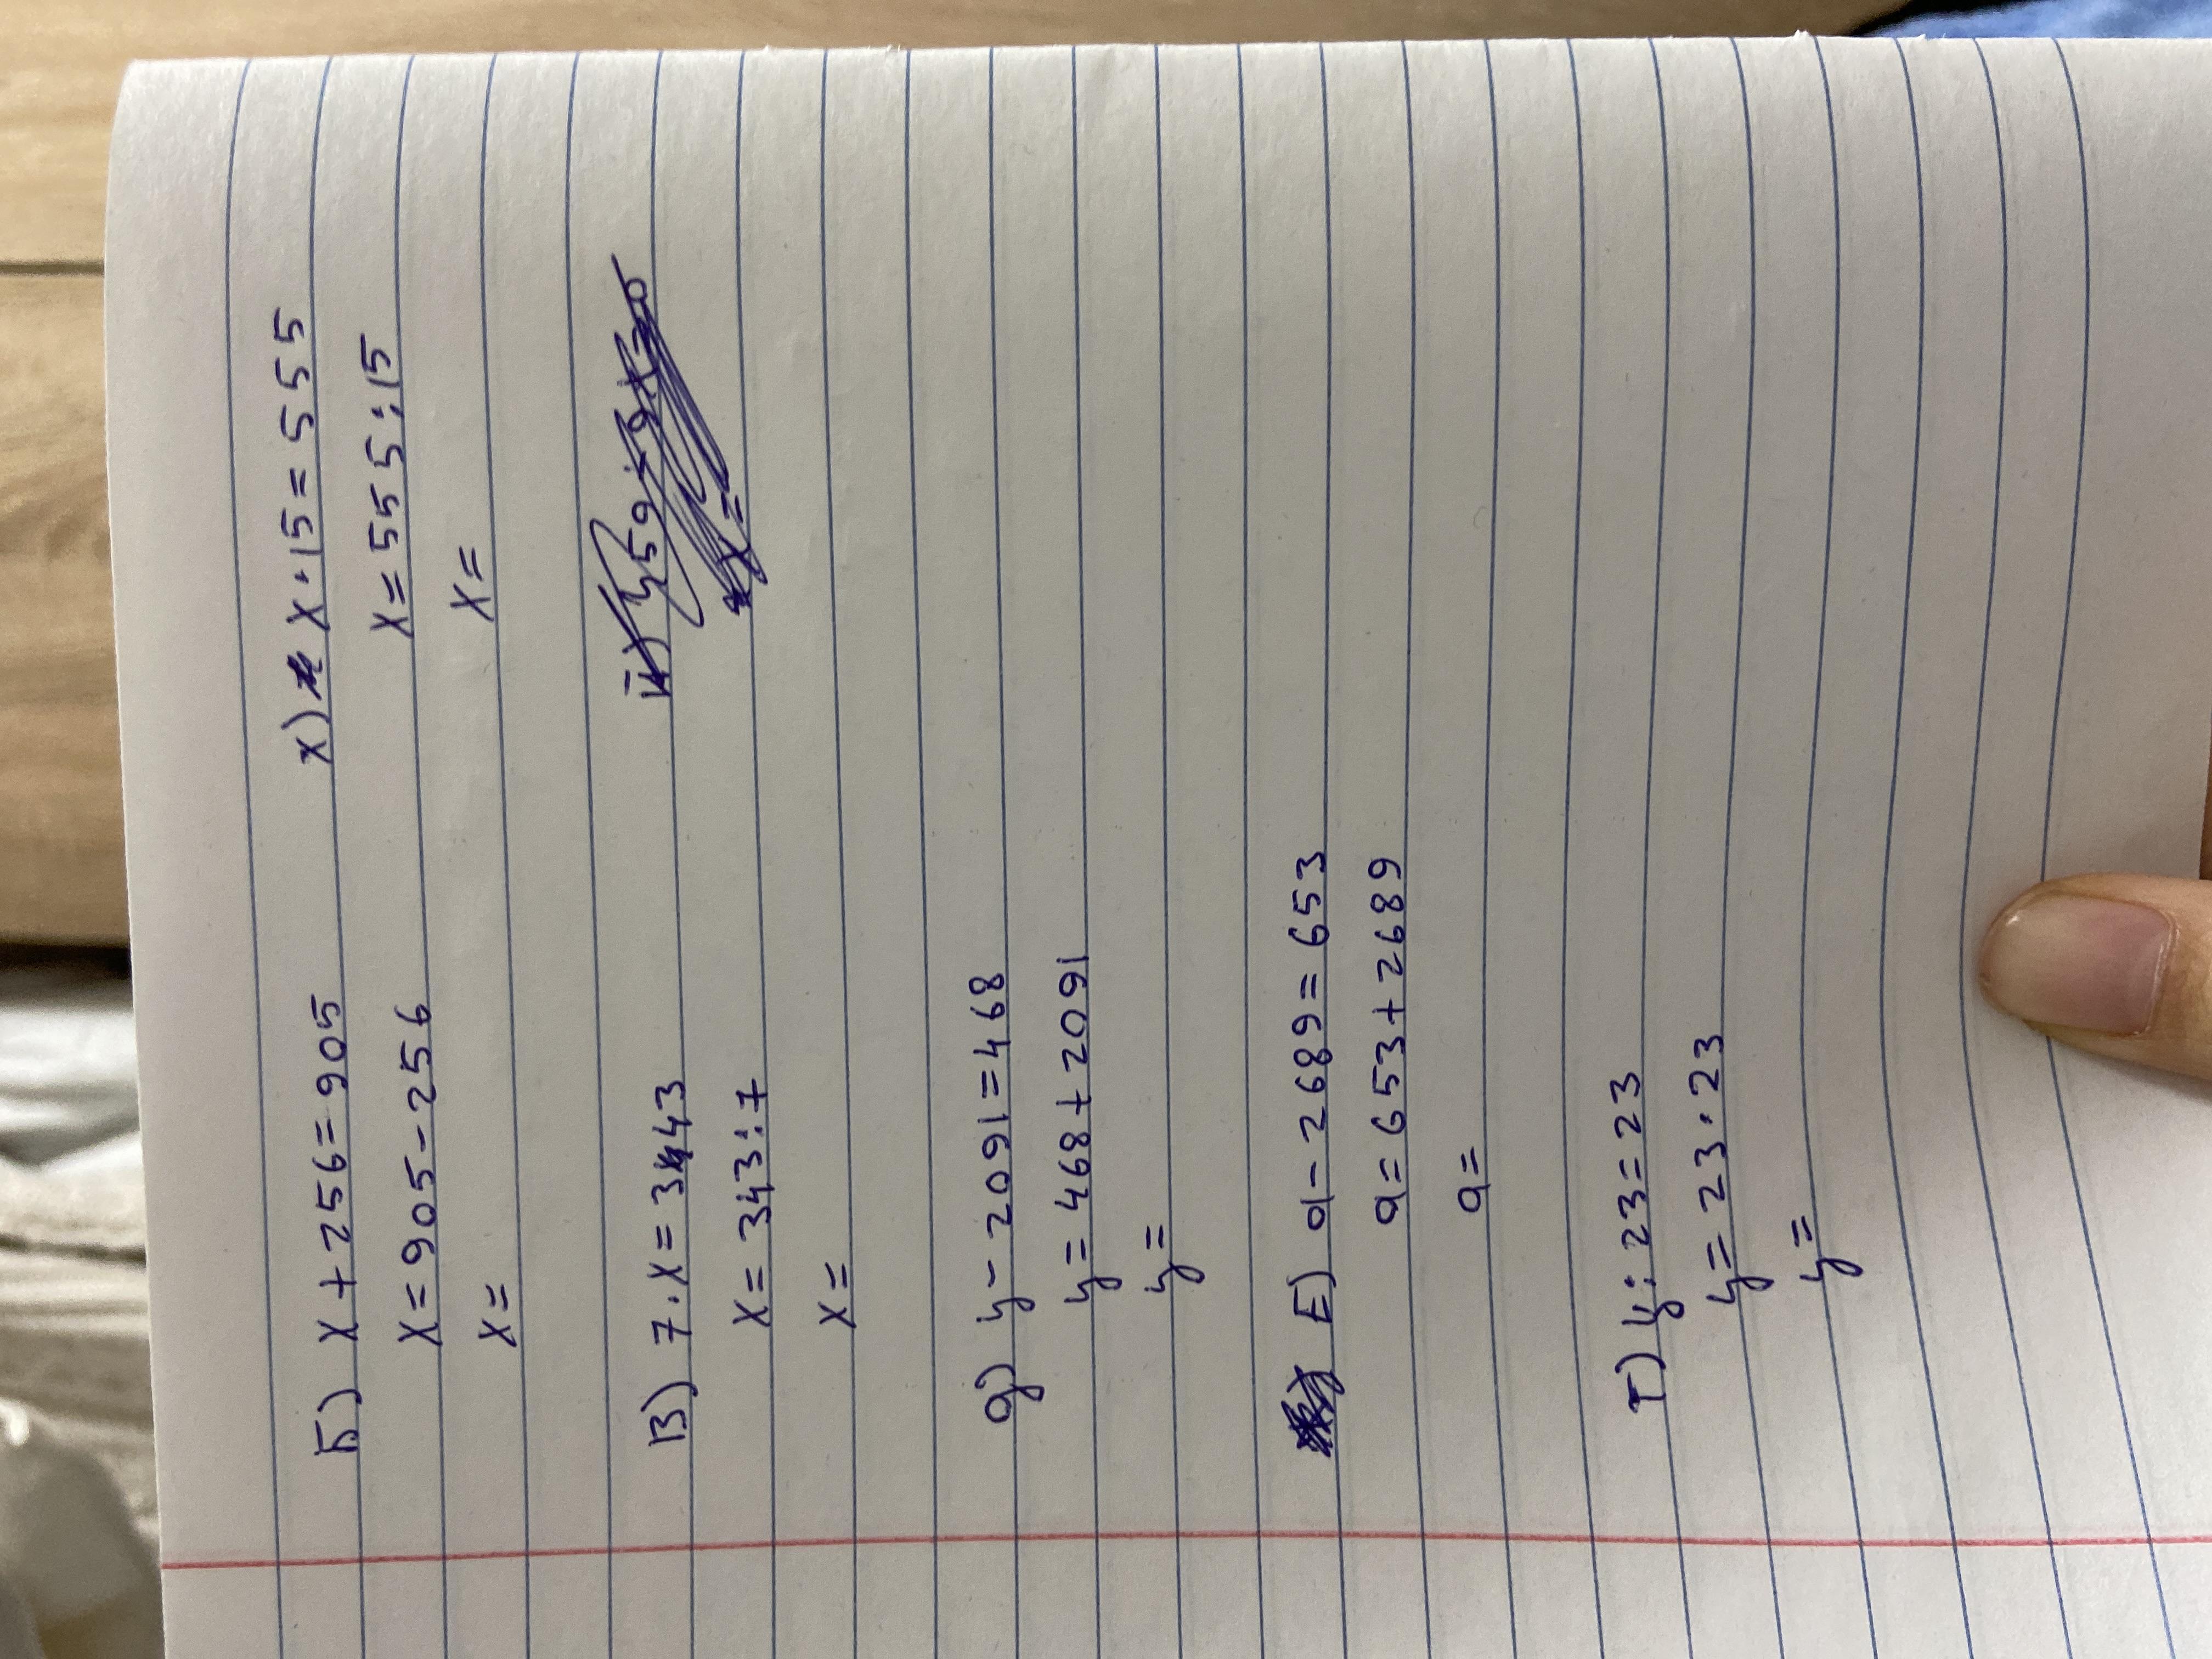 Б) x + 256 = 905
x = 905 - 256
x =
В) 7 · x = 343
x = 343 : 7
x =
g) y - 2091 = 468
y = 468 + 2091
y =
Е) a - 2689 = 653
a = 653 + 2689
a =
Т) y : 23 = 23
y = 23 · 23
y =
х) x · 15 = 555
x = 555 : 15
x =
x =